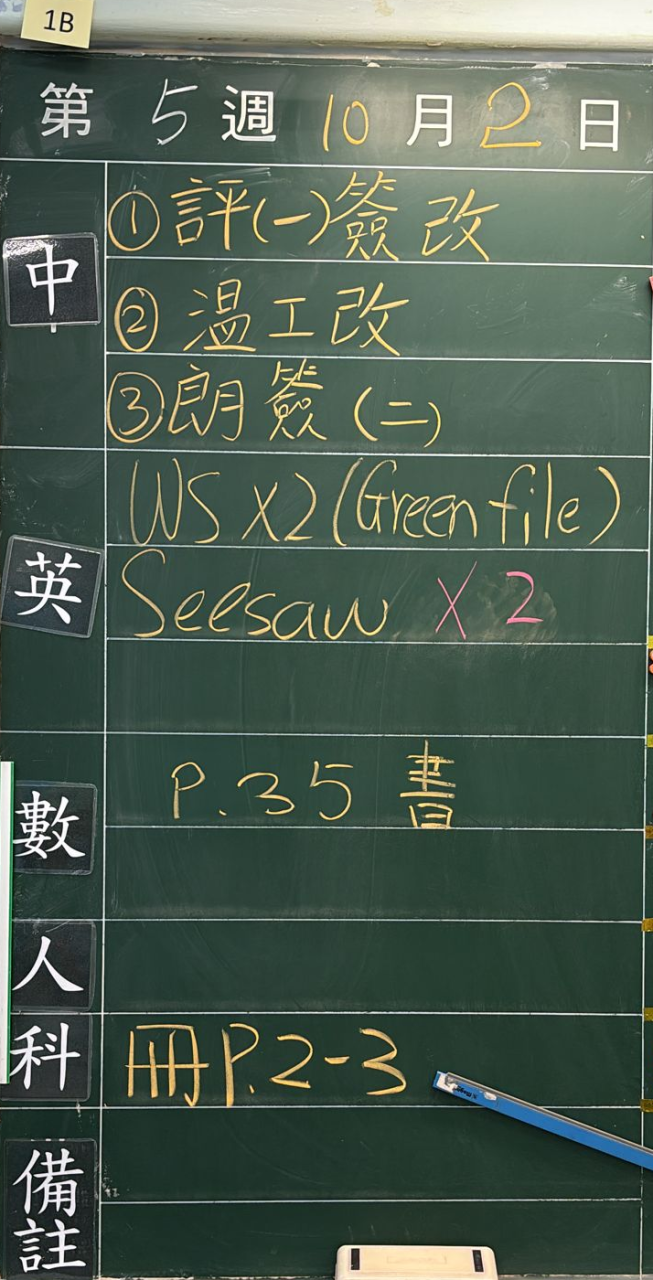 1B
第 5 週 10 月 2 日
中
①評(一)簽改
②温工改
③朗簽(二)
英
WS X2 (Green file)
Seesaw X 2
數
P.35 書
人
科
冊P.2-3
備註